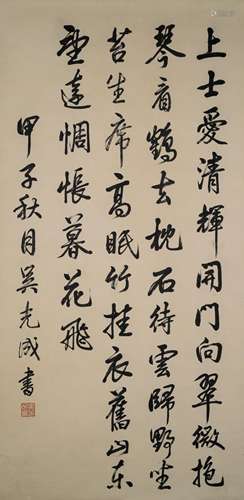 上士愛清輝開門向翠微抱
琴看鶴去枕石待雲歸野坐
苔生席高眠竹挂衣舊山東
望遠惆悵暮花飛
甲子秋月吳光成書